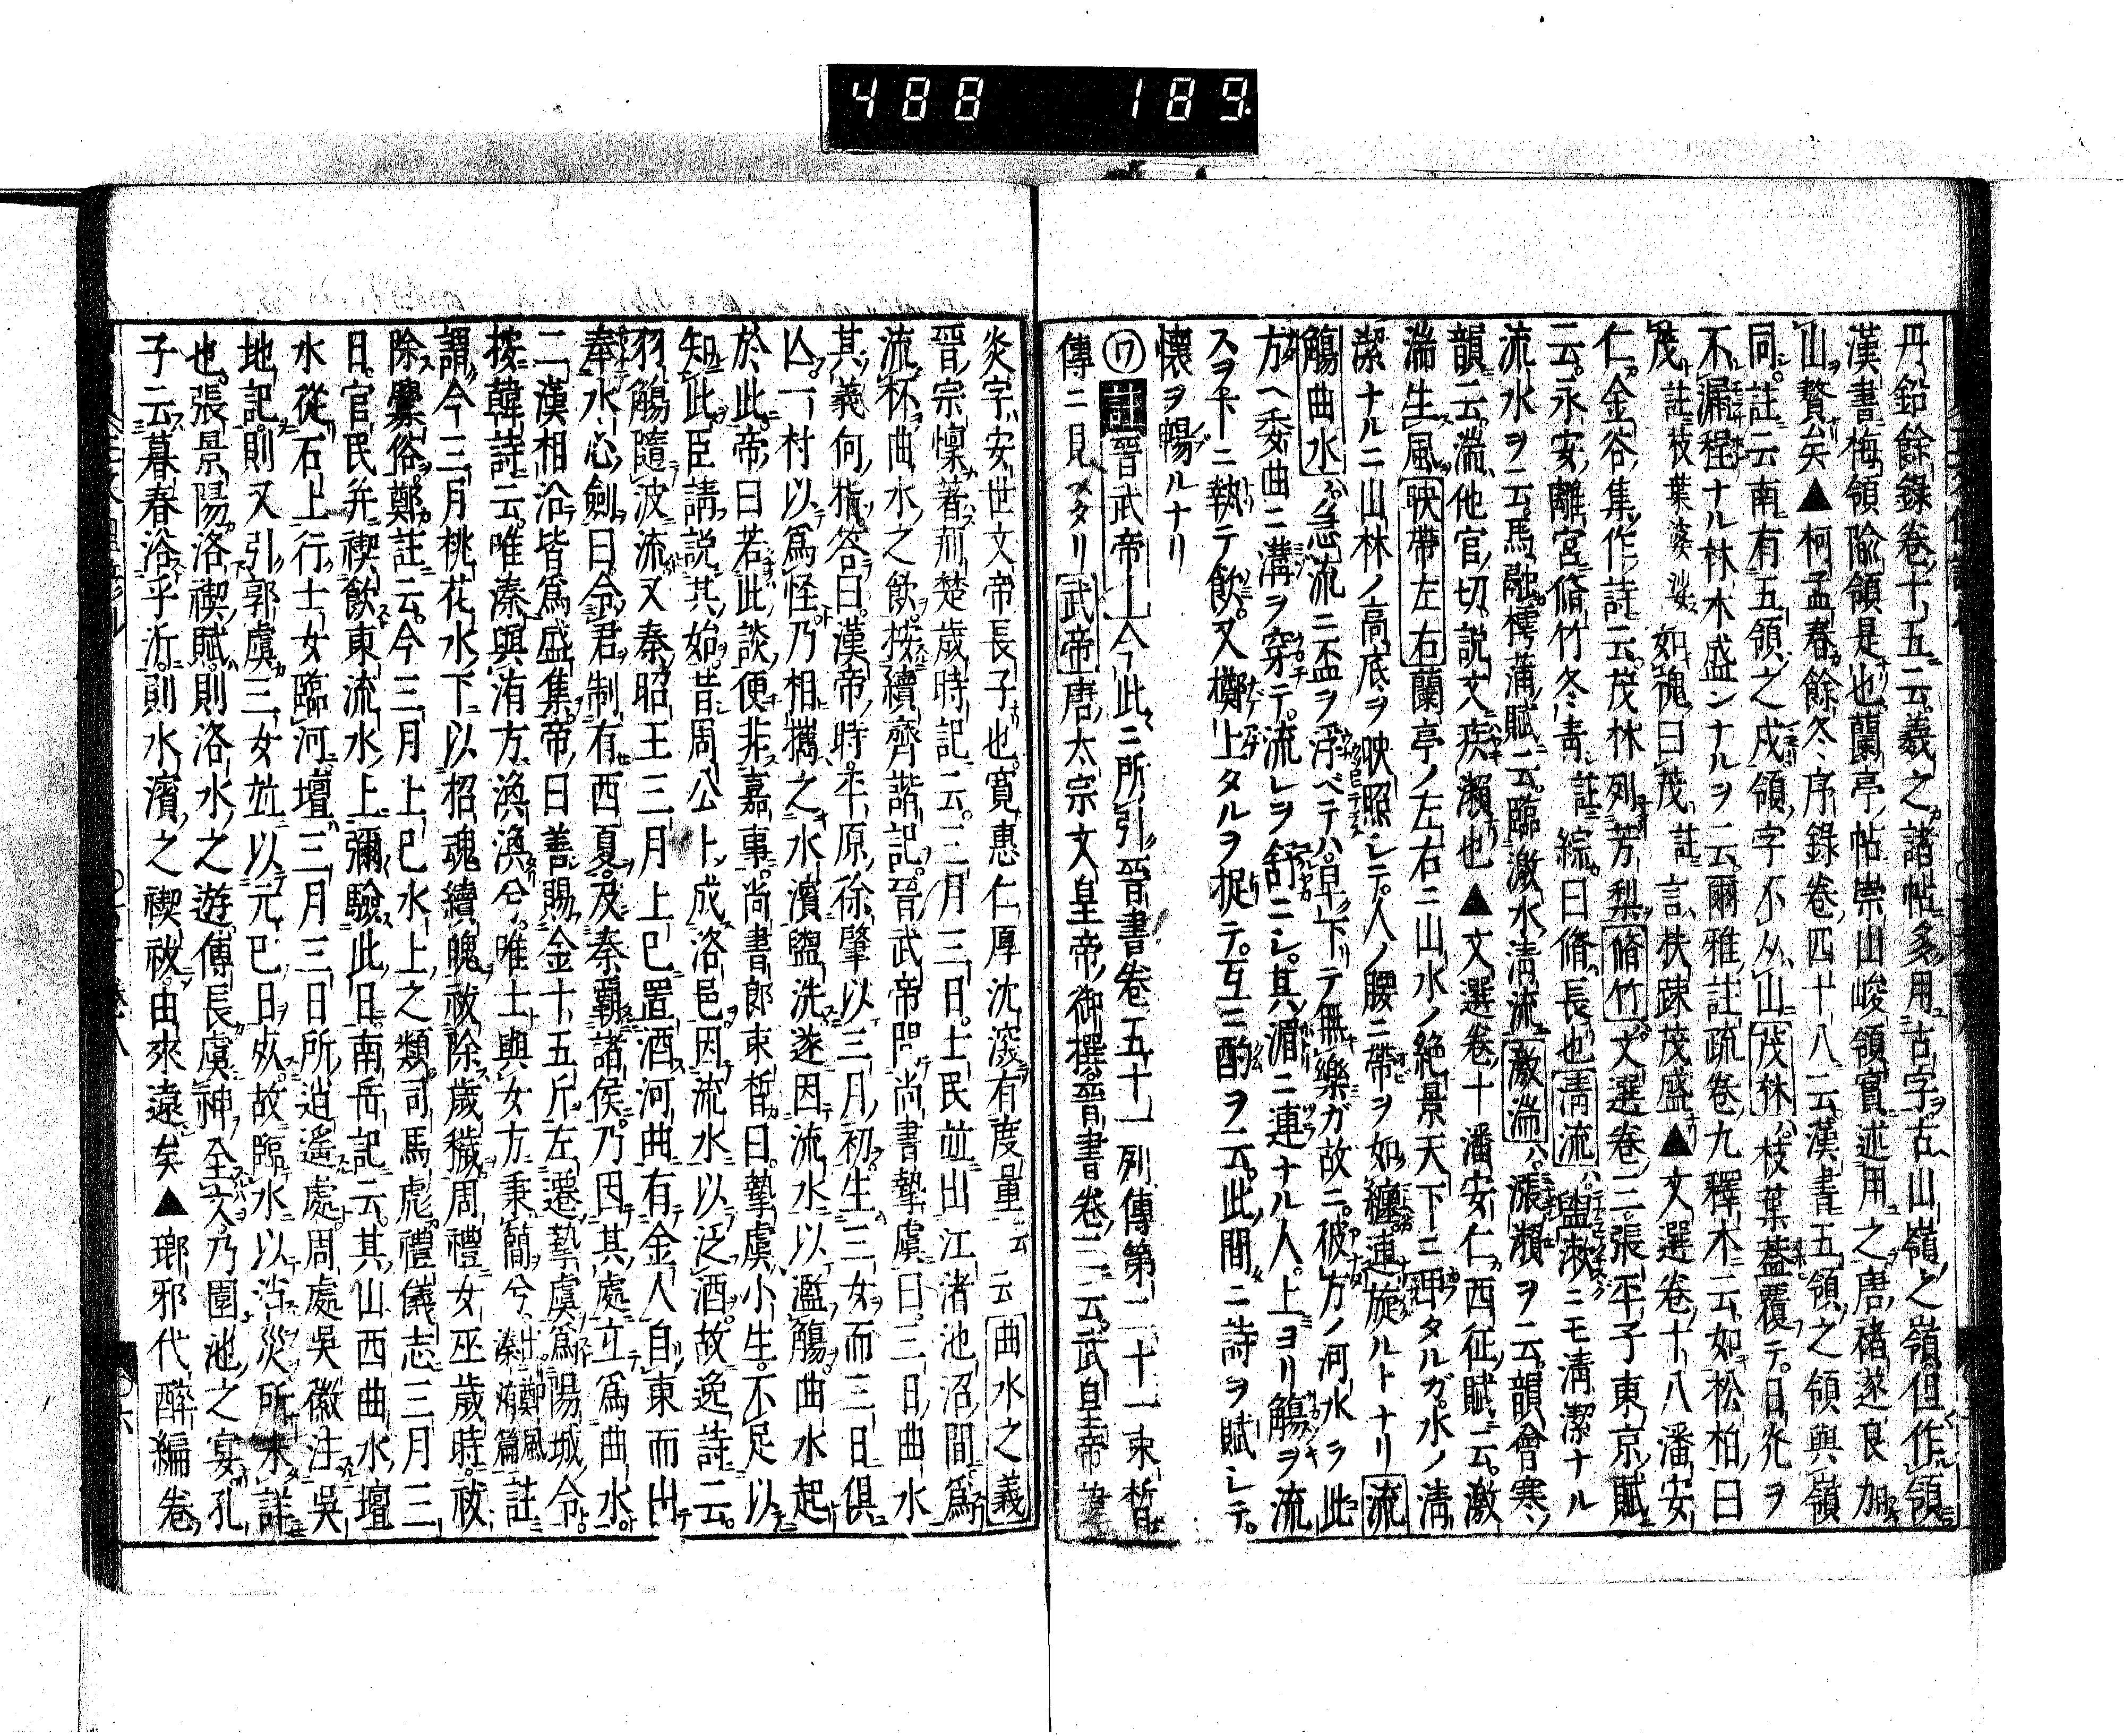 488 189
丹鉛餘錄卷十五云羲之諸帖多用古字古山嶺之嶺但作領
漢書梅領隃領是也蘭亭帖崇山峻領實述用之唐褚遂良加
山贅矣▲柯孟春餘冬序錄卷四十八云漢書五領之領與嶺
同註云南有五領之戍領字不从山茂林ハ枝葉蓋覆テ日光ヲ
不漏程ナル林木盛ンナルヲ云爾雅註疏卷九釋木云如松柏曰
茂註枝葉婆娑如槐曰茂註言扶疎茂盛▲文選卷十八潘安
仁金谷集作詩云茂林列芳梨脩竹文選卷三張平子東京賦
云永安離宮脩竹冬青註綜曰脩長也清流ハ盥漱ニモ清潔ナル
流水ヲ云馬融樗蒲賦云臨激水清流激湍ハ漲瀨ヲ云韻會寒
韻云湍他官切説文疾瀨也▲文選卷十潘安仁西征賦云激
湍生風映帶左右蘭亭ノ左右ニ山水ノ絶景天下ニ甲タルガ水ノ清
潔ナルニ山林ノ高底ヲ映照シテ人ノ腰ニ帶ヲ如纏連旋ルトナリ流
觴曲水ハ急流ニ盃ヲ浮ベテハ早下テ無樂ガ故ニ彼方ノ河水ヲ此
方ヘ委曲ニ溝ヲ穿テ流レヲ舒ニシ其湄ニ連ナル人上ヨリ觴ヲ流
スヲ下ニ執テ飮又擲上タルヲ捉テ互ニ酌ヲ云此間ニ詩ヲ賦シテ
懷ヲ暢ルナリ
晉武帝上今此ニ所引晉書卷五十一列傳第二十一束晳
傳ニ見ヘタリ武帝唐太宗文皇帝御撰晉書卷三云武皇帝諱
炎字安世文帝長子也寬惠仁厚沈深有度量云云曲水之義
晉宗懍著荊楚歲時記云三月三日士民並出江渚池沼間爲
流杯曲水之飮按續齊諧記晉武帝問尚書摯虞曰三日曲水
其義何指答曰漢帝時平原徐肇以三月初生三女而三日俱
亾一村以爲怪乃相攜之水濱盥洗遂因流水以濫觴曲水起
於此帝曰若此談便非嘉事尚書郎束晳曰摯虞小生不足以
知此臣請説其始昔周公卜成洛邑因流水以泛酒故逸詩云
羽觴隨波流又秦昭王三月上巳置酒河曲有金人自東而出
奉水心劍曰令君制有西夏及秦霸諸侯乃因其處立爲曲水
二漢相沿皆爲盛集帝曰善賜金十五斤左遷摯虞爲陽城令
按韓詩云唯溱與洧方渙渙兮唯士與女方秉蕑兮出鄭風溱洧篇註
謂今三月桃花水下以招魂續魄祓除歲穢周禮女巫歲時祓
除釁俗鄭註云今三月上巳水上之類司馬彪禮儀志三月三
日官民并禊飮東流水上彌驗此日南岳記云其山西曲水壇
水從石上行士女臨河壇三月三日所逍遙處周處吳徽注吳
地記則又引郭虞三女並以元巳日死故臨水以消災所未詳
也張景陽洛禊賦則洛水之遊傅長虞神全文乃園池之宴孔
子云暮春浴乎沂則水濱之禊祓由來遠矣▲瑯邪代醉編卷